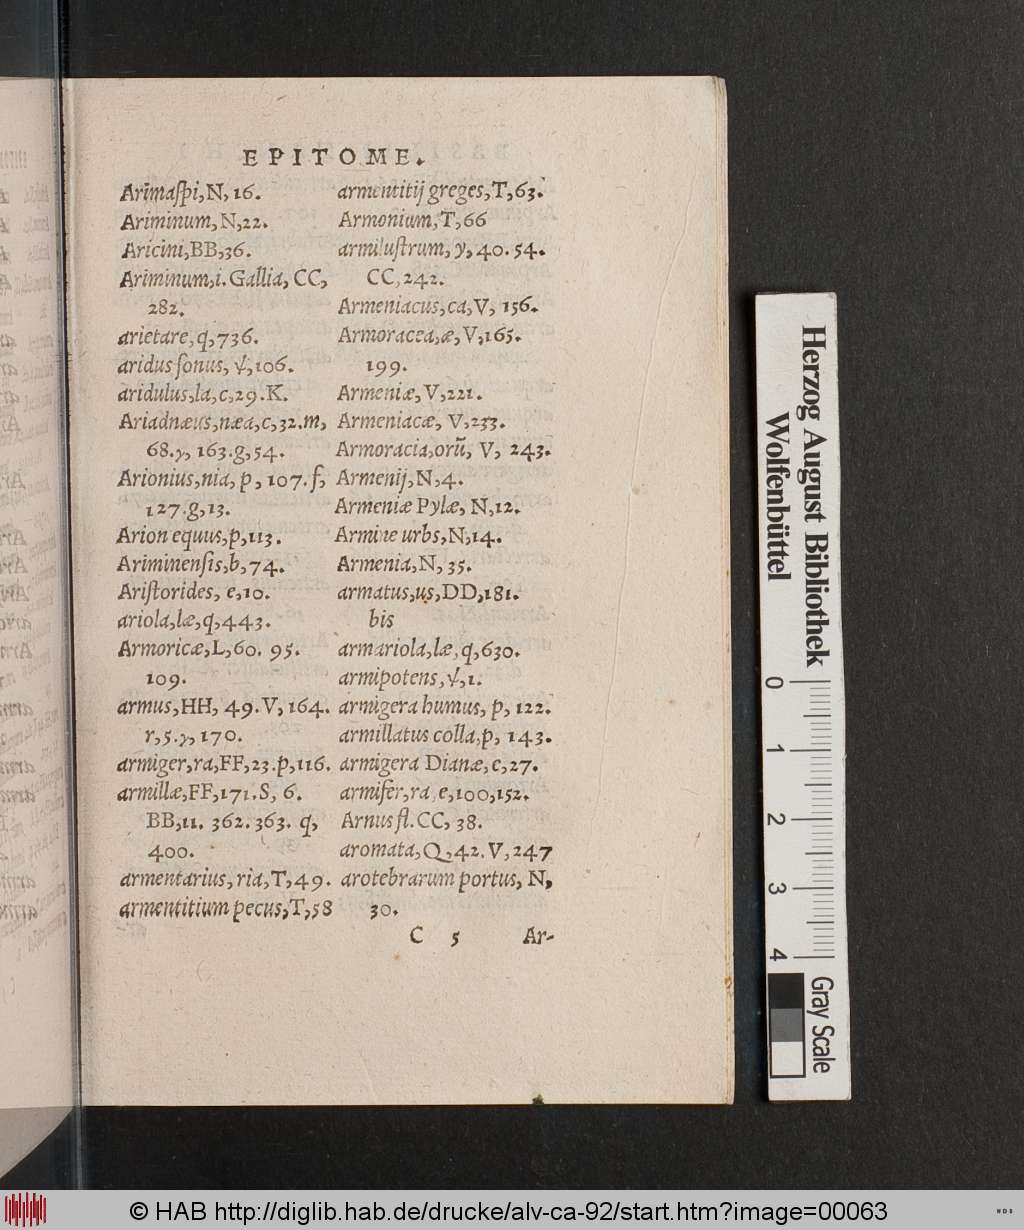 EPITOME.
Arimaſpi, N, 16.
Ariminum, N, 22.
Aricini, BB, 36.
Ariminum, i. Gallia, CC,
282.
arietare, q, 736.
aridus ſonus, ψ, 106.
aridulus, la, c, 29. K.
Ariadnæus, næa, c, 32. m,
68. y, 163. g, 54.
Arionius, nia, p, 107. ſ,
127. g, 13.
Arion equus, p, 113.
Ariminenſis, b, 74.
Ariſtorides, e, 10.
ariola, læ, q, 443.
Armoricæ, L, 60. 95.
109.
armus, HH, 49. V, 164.
r, 5. y, 170.
armiger, ra, FF, 23. p, 116.
armillæ, FF, 171. S, 6.
BB, 11. 362. 363. q,
400.
armentarius, ria, T, 49.
armentitium pecus, T, 58
armentitij greges, T, 63.
Armonium, T, 66
armiluſtrum, y, 40. 54.
CC, 242.
Armeniacus, ca, V, 156.
Armoracea, æ, V, 165.
199.
Armeniæ, V, 221.
Armeniacæ, V, 233.
Armoracia, orũ, V, 243.
Armenij, N, 4.
Armeniæ Pylæ, N, 12.
Armine urbs, N, 14.
Armenia, N, 35.
armatus, us, DD, 181.
bis
armariola, læ, q, 630.
armipotens, ψ, 1.
armigera humus, p, 122.
armillatus colla, p, 143.
armigera Dianæ, e, 27.
armifer, ra, e, 100, 152.
Arnus fl. CC, 38.
aromata, Q, 42. V, 247
arotebrarum portus, N,
30.
C 5 Ar-
Herzog August Bibliothek
Wolfenbüttel
0 1 2 3 4
Gray Scale
© HAB http://diglib.hab.de/drucke/alv-ca-92/start.htm?image=00063